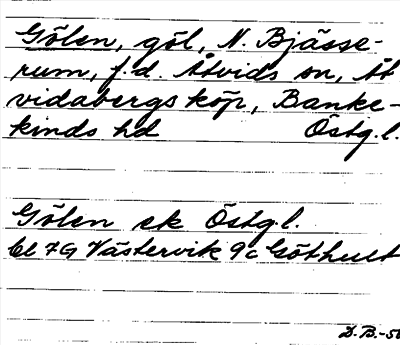 Gölen, göl, N. Bjässe-
rum, f.d. Åtvids sn, Åt
vidabergs köp, Banke-
kinds hd Östg.l.
Gölen ek Östg.l.
bl 7G Västervik 9c Göthult
D.B.-56